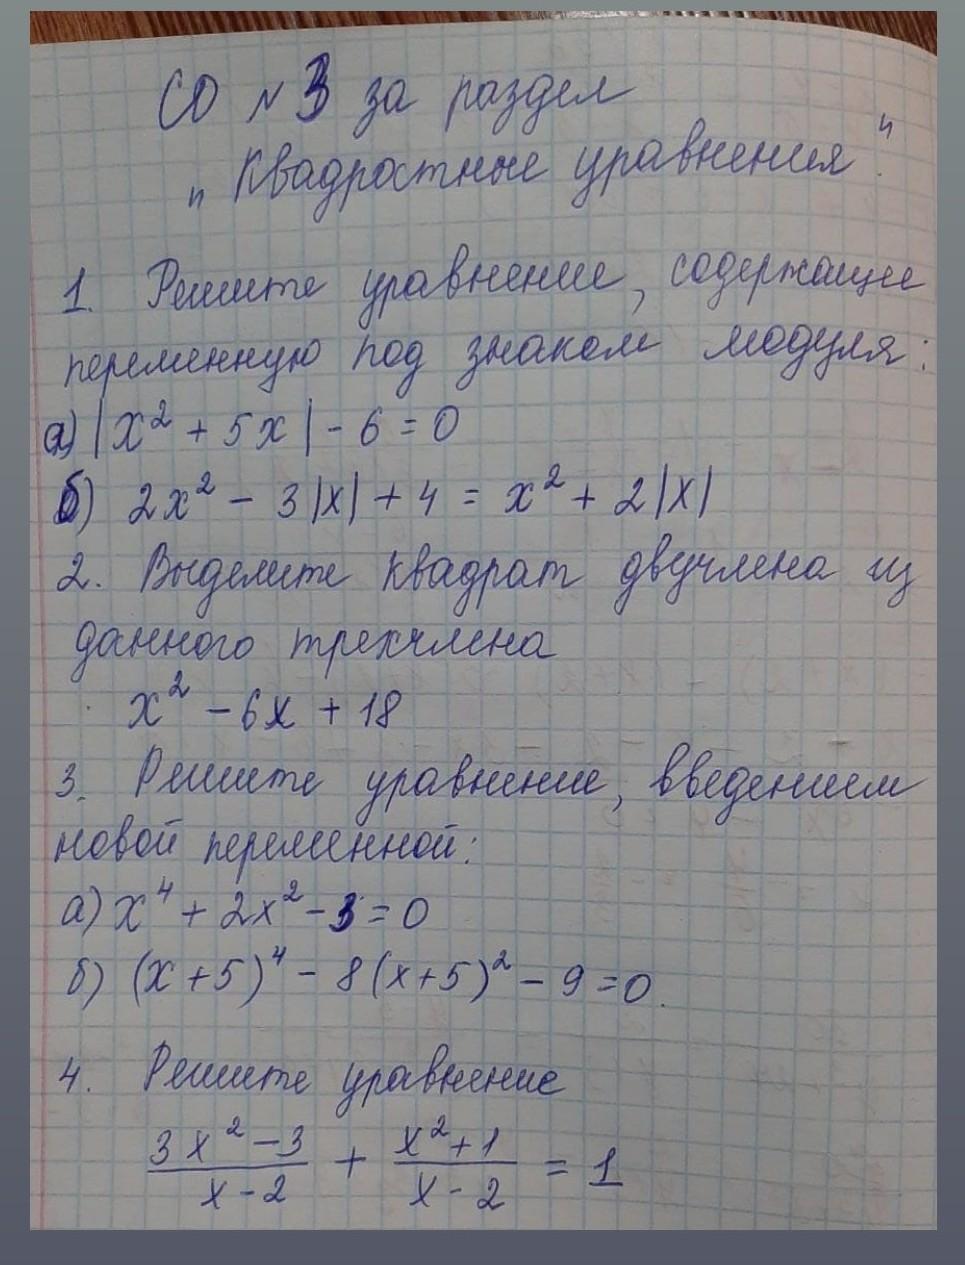 СО № 3 за раздел
„Квадратные уравнения“
1. Решите уравнение, содержащие
переменную под знаком модуля:
а) |x² + 5x| - 6 = 0
б) 2x² - 3|x| + 4 = x² + 2|x|
2. Выделите квадрат двучлена из
данного трехчлена
x² - 6x + 18
3. Решите уравнение, введением
новой переменной:
а) x⁴ + 2x² - 3 = 0
б) (x + 5)⁴ - 8(x+5)² - 9 = 0.
4. Решите уравнение
(3x² - 3)/(x - 2) + (x² + 1)/(x - 2) = 1